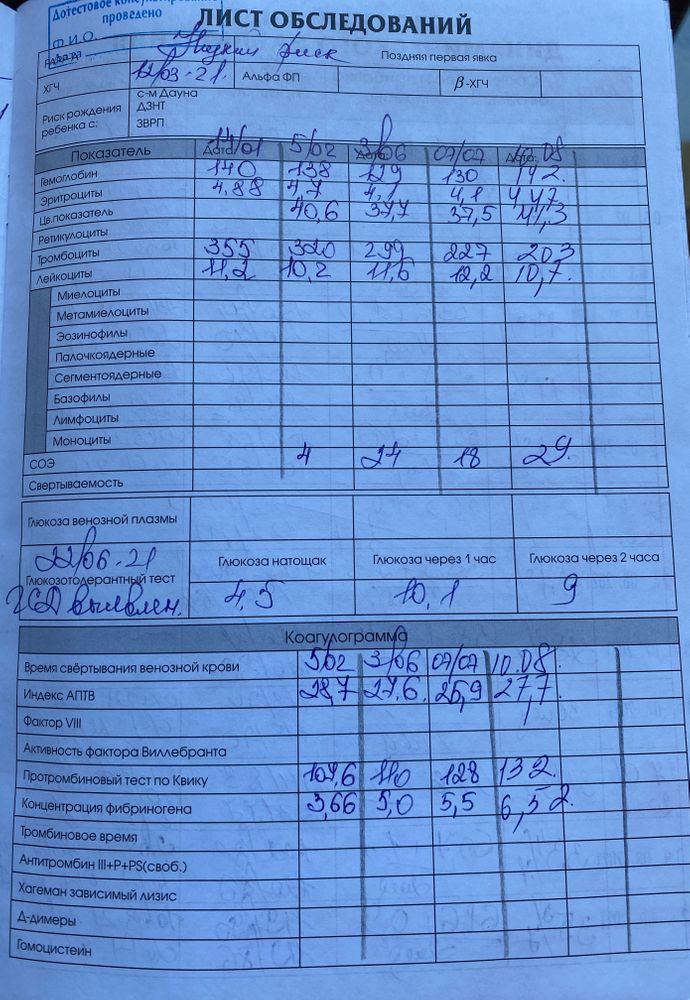 Дотестовое консультирование
проведено
Ф.И.О.
ЛИСТ ОБСЛЕДОВАНИЙ
Дата Низкий риск Поздняя первая явка
ХГЧ 12/03-21. Альфа ФП β-ХГЧ
Риск рождения ребенка с: с-м Дауна
ДЗНТ
ЗВРП
Показатель Дата: 14/01 5/02 Дата: 3/06 07/07 Дата: 10.08
Гемоглобин 140 138 129 130 142.
Эритроциты 4,88 4,7 4,1 4,1 4,47
Цв.показатель 40,6 37,7 37,5 41,3
Ретикулоциты
Тромбоциты 355 320 299 227 203
Лейкоциты 11,2 10,2 11,6 12,2 10,7.
Миелоциты
Метамиелоциты
Эозинофилы
Палочкоядерные
Сегментоядерные
Базофилы
Лимфоциты
Моноциты
СОЭ 4 24 18 29.
Свертываемость
Глюкоза венозной плазмы
22/06-21 Глюкоза натощак Глюкоза через 1 час Глюкоза через 2 часа
Глюкозотолерантный тест 4,5 10,1 9
ГСД выявлен.
Коагулограмма
Время свёртывания венозной крови 5/02 3/06 07/07 10.08.
Индекс АПТВ 28,7 27,6. 25,9 27,7
Фактор VIII
Активность фактора Виллебранта
Протромбиновый тест по Квику 107,6 110 128 132.
Концентрация фибриногена 3,66 5,0 5,5 6,52.
Тромбиновое время
Антитромбин III+P+PS(своб.)
Хагеман зависимый лизис
Д-димеры
Гомоцистеин